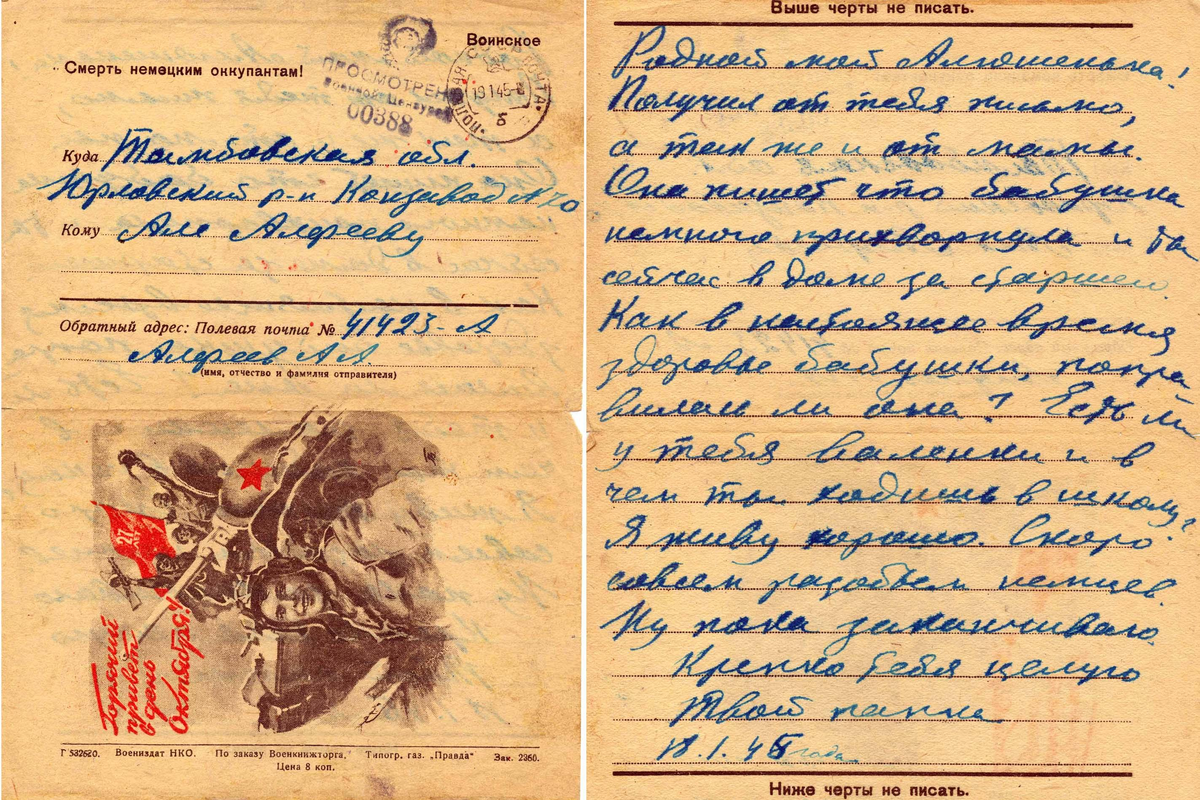 Воинское
Смерть немецким оккупантам!
ПРОСМОТРЕНО
Военной Цензурой
00388
ПОЛЕВАЯ ПОЧТА
19 1 45
б
Куда Тамбовская обл.
Юрловский р-н Конзавод №
Кому Але Алфееву
Обратный адрес: Полевая почта № 41423-А
Алфеев А.А.
(имя, отчество и фамилия отправителя)
27
ЛЕТ
Горячий
привет
в день
Октября!
Г 532620. Воениздат НКО. По заказу Военкнижторга. Типогр. газ. „Правда“ Зак. 2360.
Цена 8 коп.
Выше черты не писать.
Родной мой Алюшенька!
Получил от тебя письмо,
а так же и от мамы.
Она пишет что бабушка
немного прихворнула и ты
сейчас в доме за старшего.
Как в настоящее время
здоровье бабушки, попра
вилась ли она? Есть ли
у тебя валенки и в
чем ты ходишь в школу?
Я живу хорошо. Скоро
совсем разобьем немцев.
Ну пока заканчиваю.
Крепко тебя целую
Твой папка
18.1.45 года.
Ниже черты не писать.